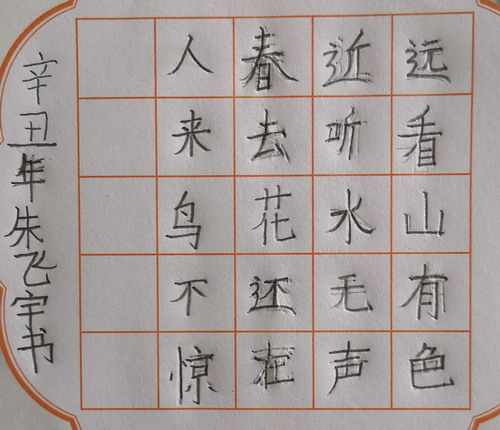 远看山有色
近听水毛声
春去花还在
人来鸟不惊
辛丑年朱飞宇书